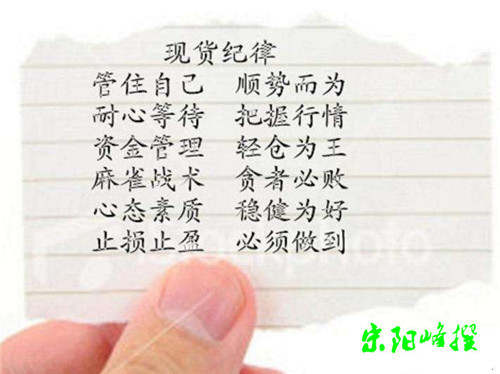 现货纪律
管住自己 顺势而为
耐心等待 把握行情
资金管理 轻仓为王
麻雀战术 贪者必败
心态素质 稳健为好
止损止盈 必须做到
宗阳峰撰